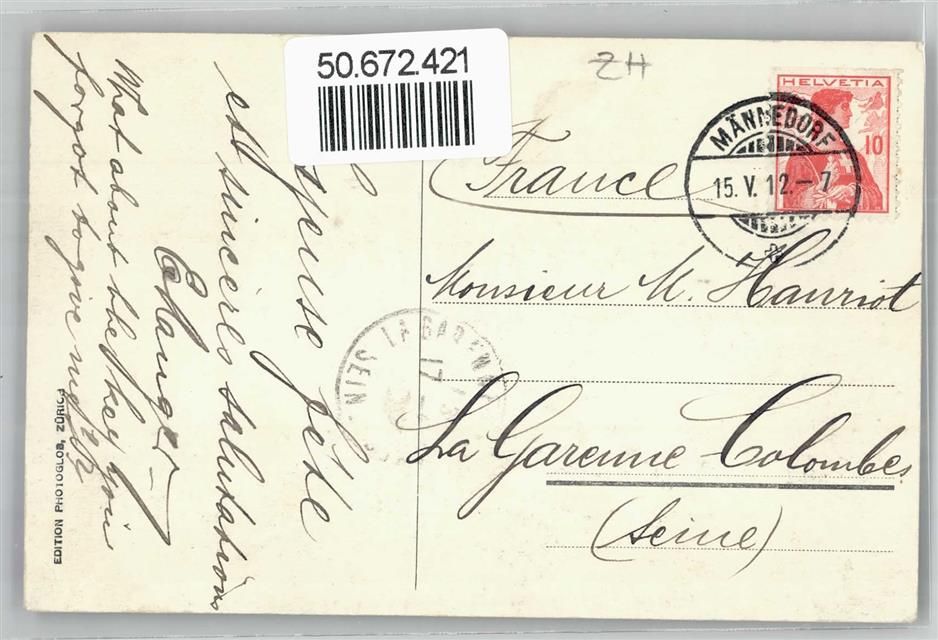 50.672.421
ZH
HELVETIA
10
MÄNNEDORF
15. V. 12. – 7
France
Monsieur M. Hanriot
La Garenne-Colombes
(Seine)
LA GARENNE
17
SEINE
fête
et sincères salutations
What about the key you
forgot to give me?
EDITION PHOTOGLOB, ZÜRICH